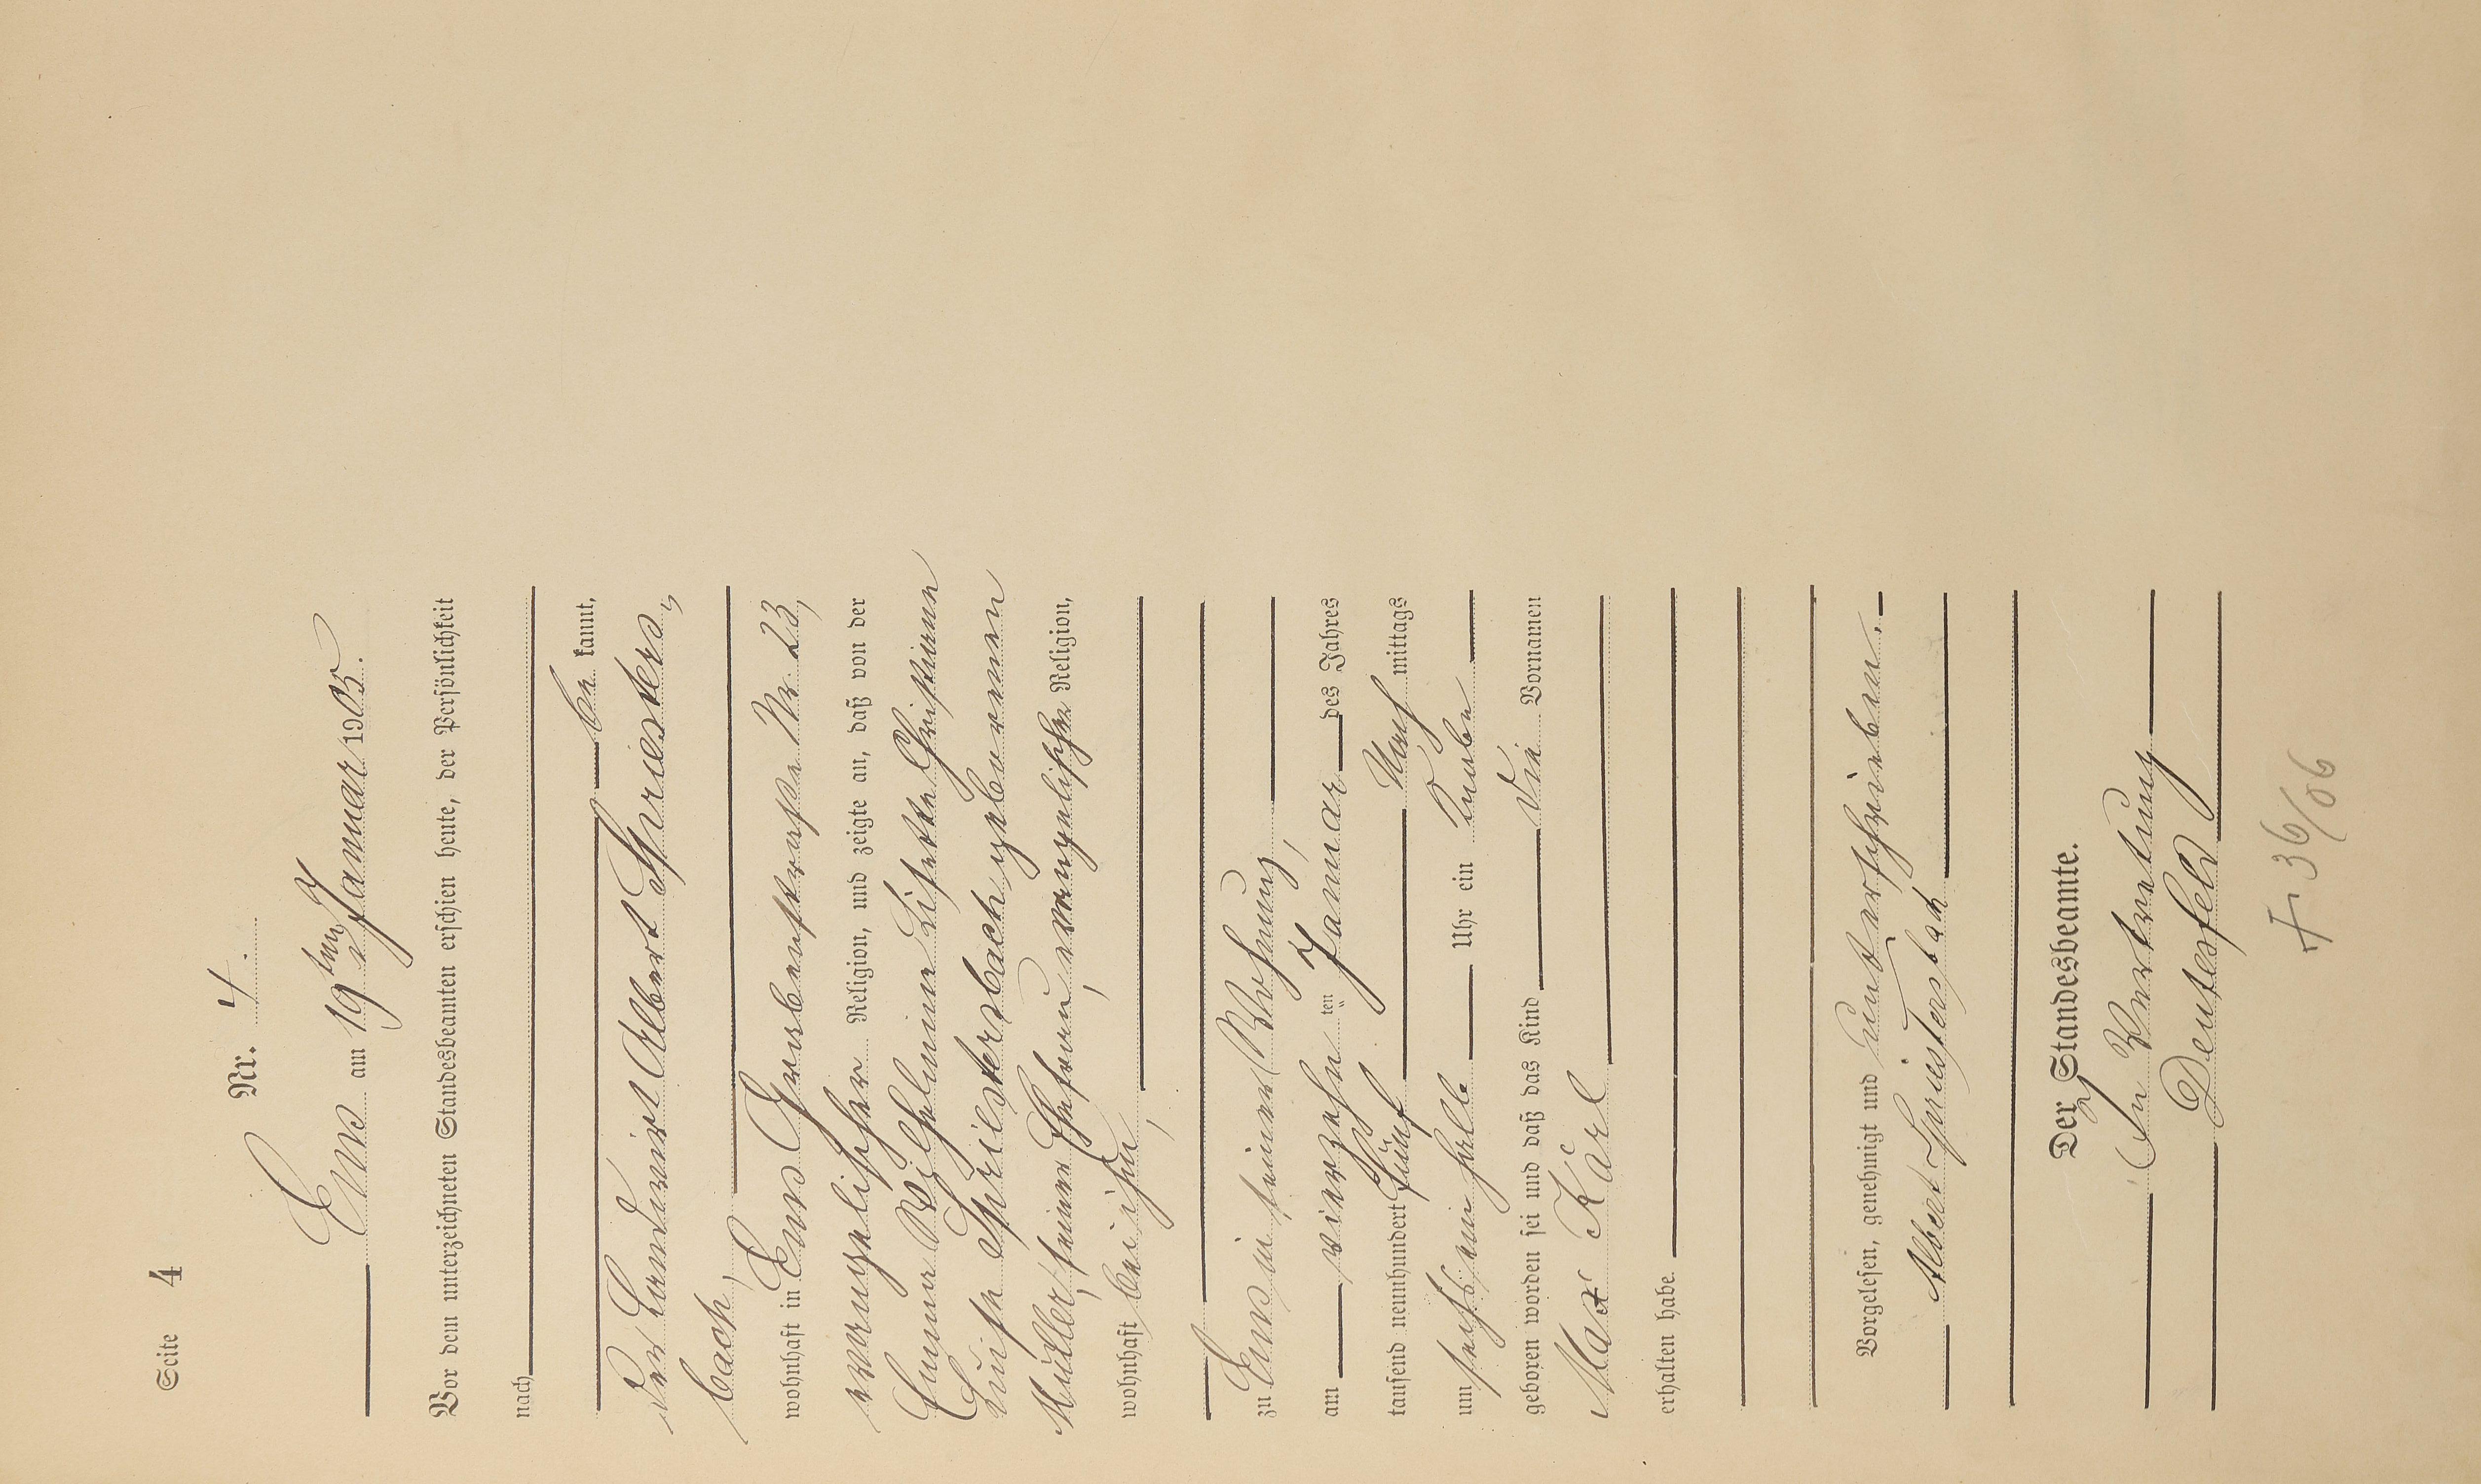 Seite 4
Nr. 4.
Ems am 19ten Januar 1905.
Vor dem unterzeichneten Standesbeamten erschien heute, der Persönlichkeit
nach
be kannt,
der Landwirt Albert Spriesters-
bach,
wohnhaft in Ems Grabenstraße Nr. 23,
evangelischer Religion, und zeigte an, daß von der
Emma Wilhelmine Lisette Christiane
Luise Spriestersbach, geborenen
Müller, seiner Ehefrau, evangelischer Religion,
wohnhaft bei ihm,
zu Ems in seiner Wohnung,
am vierzehn ten Januar des Jahres
tausend neunhundert fünf Nach mittags
um sechs ein halb Uhr ein Knabe
geboren worden sei und daß das Kind die Vornamen
Max Karl
erhalten habe.
Vorgelesen, genehmigt und unterschrieben.
Albert Spriestersbach
Der Standesbeamte.
In Vertretung
Deutesfeld
† 36/06